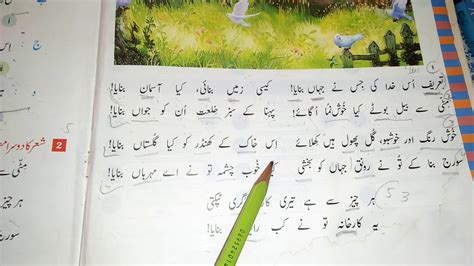 تعریف اُس خدا کی جس نے جہاں بنایا! کیسی زمیں بنائی، کیا آسماں بنایا!
مٹی سے بیل بوٹے کیا خوش نما اُگائے! پہنا کے سبز خلعت اُن کو جواں بنایا!
خوش رنگ اور خوشبو گل پھول ہیں کھلائے اِس خاک کے کھنڈر کو کیا گلستاں بنایا!
سورج بنا کے تُو نے رونق جہاں کو بخشی خوب چشمہ تو نے اے مہرباں بنایا!
ہر چیز سے ہے تیری ٹپکتی
یہ کارخانہ تو نے کب بنایا!
2
شعر کا دوسرا مصرع
مٹی سے
ہر چیز
سورج
53